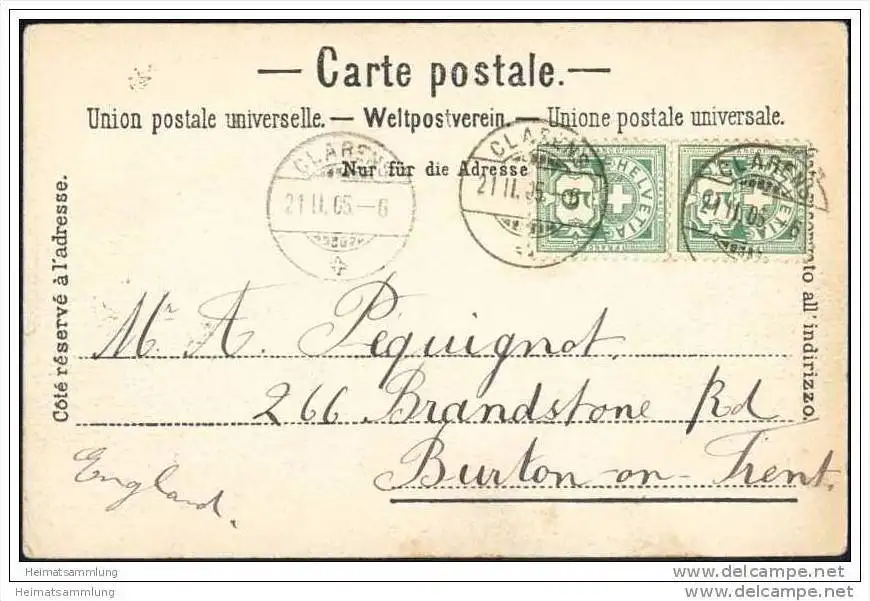 — Carte postale. —
Union postale universelle. — Weltpostverein. — Unione postale universale.
Nur für die Adresse
Côté réservé à l'adresse.
all' indirizzo.
CLARENS
21 II. 05. – 6
CLARENS
21 II. 05. – 6
HELVETIA
CLARENS
21 II. 05. 6
Mr. A. Péquignot.
266 Brandstone Rd
Burton-on-Trent.
England.
Heimatsammlung
Heimatsammlung
delcampe.net
delcampe.net